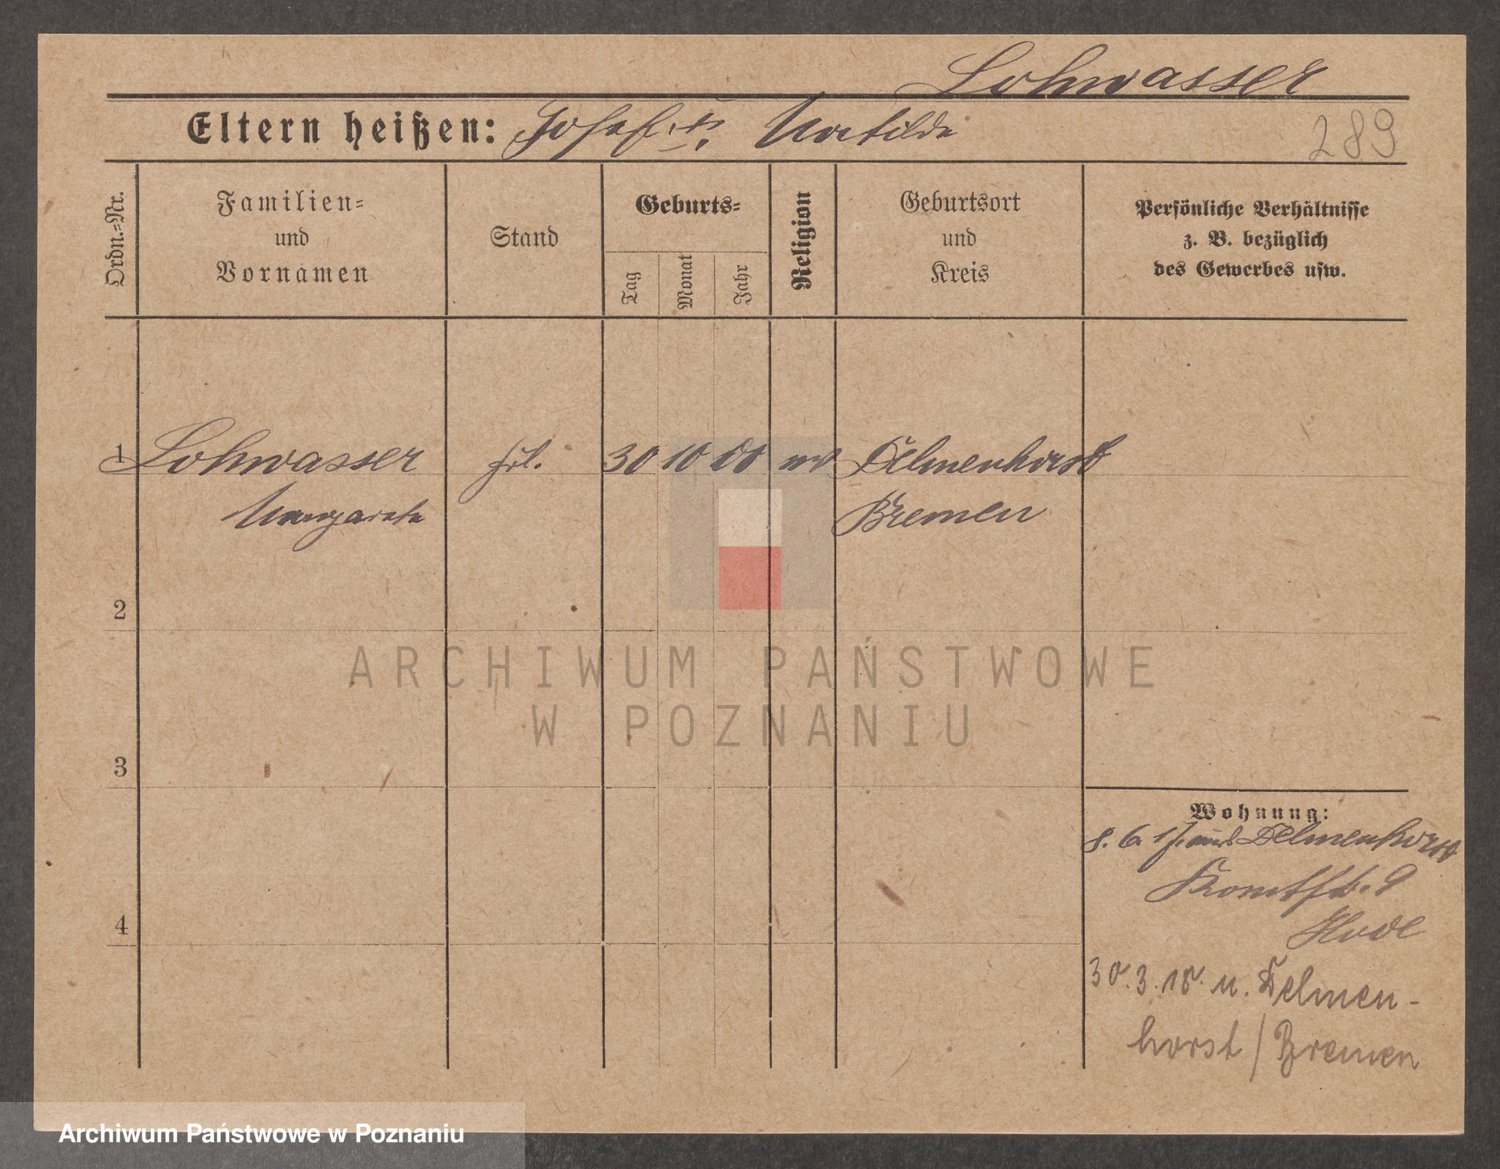 Lohwasser
Eltern heißen: Josef u. Matilde
289
Ordn.-Nr.
Familien-
und
Vornamen
Stand
Geburts-
Tag
Monat
Jahr
Religion
Geburtsort
und
Kreis
Persönliche Verhältnisse
z. B. bezüglich
des Gewerbes usw.
1 Lohwasser frl. 30 10 00 Delmenhorst
Margarete Bremen
2
ARCHIWUM PAŃSTWOWE
W POZNANIU
3
Wohnung:
8. 6. 17. aus Delmenhorst
9
4
30. 3. 18. n. Delmen-
horst / Bremen
Archiwum Państwowe w Poznaniu